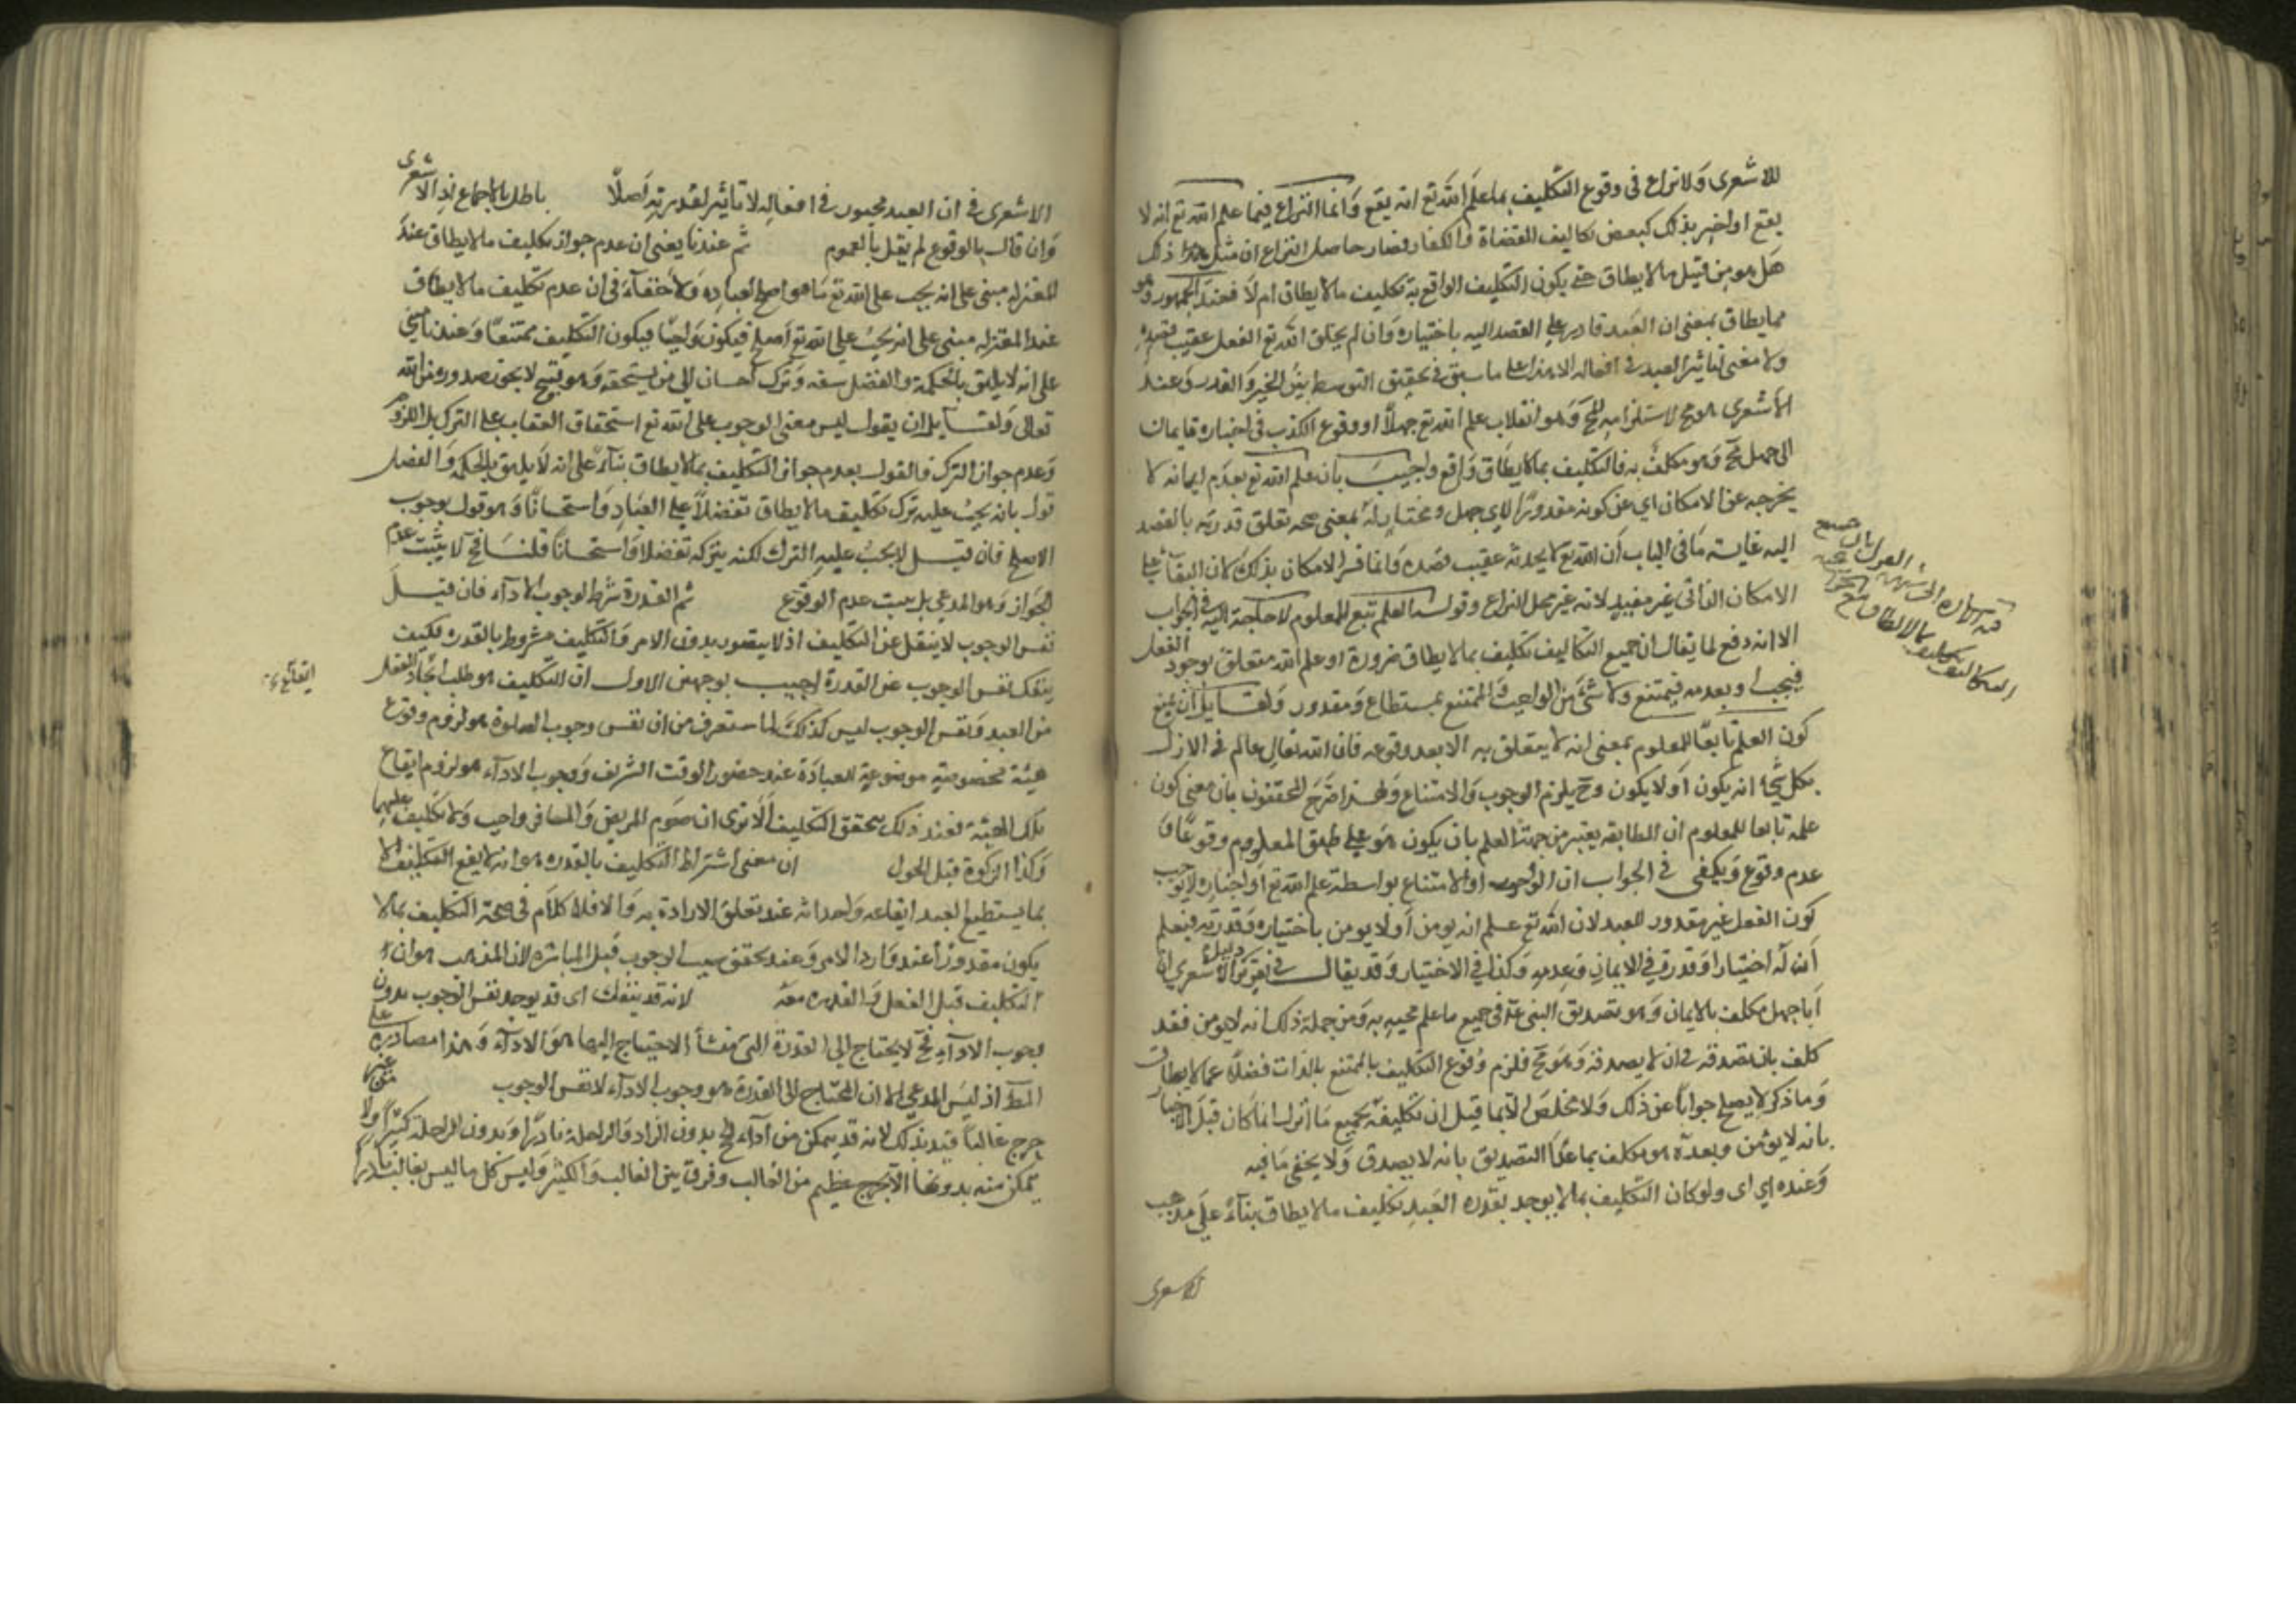 للاشعرى ولا نزاع فى وقوع التكليف بما علم الله تع انه يقع وانما النزاع فيما علم الله تع انه لا
يقع او اخبر بذلك كبعض تكاليف العصاة والكفار فصار حاصل النزاع ان مثل ذلك
هل هو من قبيل ما لا يطاق حتى يكون التكليف الواقع به تكليف ما لا يطاق ام لا فعند الجمهور هو
مما يطاق بمعنى ان العبد قادر على القصد اليه باختياره وان لم يخلق الله تع الفعل عقيب قصده
ولا معنى لتأثير العبد فى افعاله الا هذا على ما سبق فى تحقيق التوسط بين الجبر والقدر وعند
الاشعرى هو مح لاستلزامه المح وهو انقلاب علم الله تع جهلا او وقوع الكذب فى اخباره فايمان
ابى جهل مح وهو مكلف به فالتكليف بما لا يطاق واقع واجيب بان علم الله تع بعدم ايمانه لا
يخرجه عن الامكان اي عن كونه مقدورا لابي جهل ومختارا له بمعنى صحه تعلق قدرته بالقصد
اليه غاية ما فى الباب ان الله تع لا يحدثه عقيب قصده وانما فسر الامكان بذلك لان البقاء على
الامكان الذاتى غير مفيد لانه غير محل النزاع وقوله العلم تبع للمعلوم لا حاجة اليه فى الجواب
الا انه دفع لما يقال ان جميع التكاليف تكليف بما لا يطاق ضرورة او علم الله متعلق بوجود الفعل
فيجب او بعدمه فيمتنع ولا شئ من الواجب والممتنع بمستطاع ومقدور ولقايل ان يمنع
كون العلم تابعا للمعلوم بمعنى انه لا يتعلق به الا بعد وقوعه فان الله تعالى عالم فى الازل
بكل شئ انه يكون او لا يكون وح يلزم الوجوب والامتناع ولهذا صرح المحققون بان معنى كون
علمه تابعا للمعلوم ان المطابقه يعتبر من جهة العلم بان يكون هو على طبق المعلوم وقوعا و
عدم وقوع ويكفى فى الجواب ان الوجوب او الامتناع بواسطة علم الله تع او اخباره لا يوجب
كون الفعل غير مقدور للعبد لان الله تع علم انه يومن او لا يومن باختياره وقدرته فيعلم
ان له اختيارا وقدرة فى الايمان وعدمه وكذا فى الاختيار وقد يقال فى تقرير دليل الاشعري ان
ابا جهل مكلف بالايمان وهو تصديق النبى عم فى جميع ما علم مجيه به ومن جملة ذلك انه لا يومن فقد
كلف بان يصدقه فى ان لا يصدقه وهو مح فلزم وقوع التكليف بالممتنع بالذات فضلا عما لا يطاق
وما ذكر لا يصلح جوابا عن ذلك ولا مخلص الا بما قيل ان تكليفه بجميع ما انزل انما كان قبل الاخبار
بانه لا يؤمن وبعده هو مكلف بما عدا التصديق بانه لا يصدق ولا يخفى ما فيه
وعنده اي اى ولو كان التكليف بما لا يوجد بقدرة العبد تكليف ما لا يطاق بناء على مذهب
الاشعرى
فيه الاشاره الى
القول بان جميع
التكاليف تكليف بما لا يطاق
الاشعرى فى ان العبد مجبور فى افعاله لا تأثير لقدرته اصلا باطل بالاجماع اذ الاشعرى
وان قال بالوقوع لم يقل بالعموم ثم عندنا يعنى ان عدم جواز تكليف ما لا يطاق عند
المعتزله مبنى على انه يجب على الله تع ما هو اصلح لعباده ولا خفاء فى ان عدم تكليف ما لا يطاق
عند المعتزله مبنى على انه يجب على الله تع اصلح فيكون واجبا فيكون التكليف ممتنعا وعندنا مبنى
على انه لا يليق بالحكمة والفضل سفه وترك احسان الى من يستحقه وهو قبيح لا يجوز صدوره من الله
تعالى ولقايل ان يقول ليس معنى الوجوب على الله تع استحقاق العقاب على الترك بل اللزوم
وعدم جواز الترك فالقول بعدم جواز التكليف بما لا يطاق بناء على انه لا يليق بالحكمة والفضل
قول بانه يجب عليه ترك تكليف ما لا يطاق تفضلا على العباد واستحسانا وهو قول بوجوب
الاصلح فان قيل لا يجب عليه الترك لكنه يتركه تفضلا واستحسانا قلنا فح لا يثبت عدم
الجواز وهو المدعى بل يثبت عدم الوقوع ثم القدرة شرط لوجوب الاداء فان قيل
نفس الوجوب لا ينفك عن التكليف اذ لا يتصور بدون الامر والتكليف مشروط بالقدره فكيف
ينفك نفس الوجوب عن القدرة اجيب بوجهين الاول ان التكليف هو طلب ايجاد الفعل
من العبد ونفس الوجوب ليس كذلك لما ستعرف من ان نفس وجوب الصلوة هو لزوم وقوع
هيئة مخصوصة موضوعة للعبادة عند حضور الوقت الشريف ووجوب الاداء هو لزوم ايقاع
تلك الهيئة فعند ذلك يتحقق التكليف الا ترى ان صوم المريض والمسافر واجب ولا تكليف عليهما
وكذا الزكوة قبل الحول ان معنى اشتراط التكليف بالقدره هو انه لا يقع التكليف الا
بما يستطيع العبد ايقاعه واحداثه عند تعلق الارادة به والا فلا كلام فى صحة التكليف بما لا
يكون مقدورا عند وارد الامر وعند تحقق سبب الوجوب قبل المباشرة لان المذهب هو ان
التكليف قبل الفعل والقدره معه لانه قد ينفك اى قد يوجد نفس الوجوب بدون
وجوب الاداء فح لا يحتاج الى القدرة التى منشأ الاحتياج اليها هو الاداء وهذا مصادرة على
المط اذ ليس المدعى الا ان المحتاج الى القدرة هو وجوب الاداء لا نفس الوجوب من غير
حرج غالبا قيد بذلك لانه قد يتمكن من اداء الحج بدون الزاد والراحلة نادرا وبدون الراحلة كثيرا ولا
يتمكن منه بدونها الا بحرج عظيم من الغالب وفرق بين الغالب والكثير وليس كل ما ليس بغالب نادرا